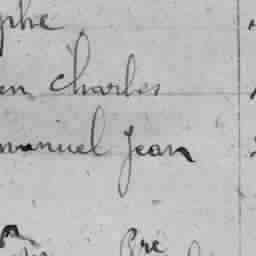 phe
en Charles
manuel Jean
Pre